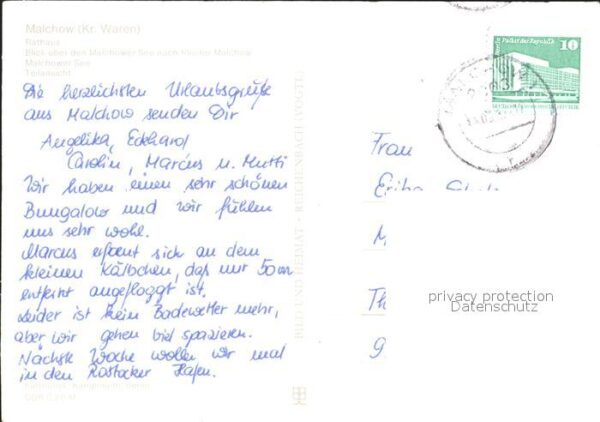 Malchow (Kr. Waren)
Rathaus
Blick über den Malchower See nach Kloster Malchow
Malchower See
Teilansicht
Die herzlichsten Urlaubsgrüße
aus Malchow senden Dir
Angelika, Eckhard
Carolin, Marcus u. Mutti
Wir haben einen sehr schönen
Bungalow und wir fühlen
uns sehr wohl.
Marcus erfreut sich an dem
kleinen Kälbchen, das nur 50 m
entfernt angepfloggt ist.
Leider ist kein Badewetter mehr,
aber wir gehen viel spazieren.
Nächste Woche wollen wir mal
in den Rostocker Hafen.
BILD UND HEIMAT REICHENBACH (VOGTL)
Berlin, Palast der Republik 10
Frau
M
Th
9
privacy protection
Datenschutz